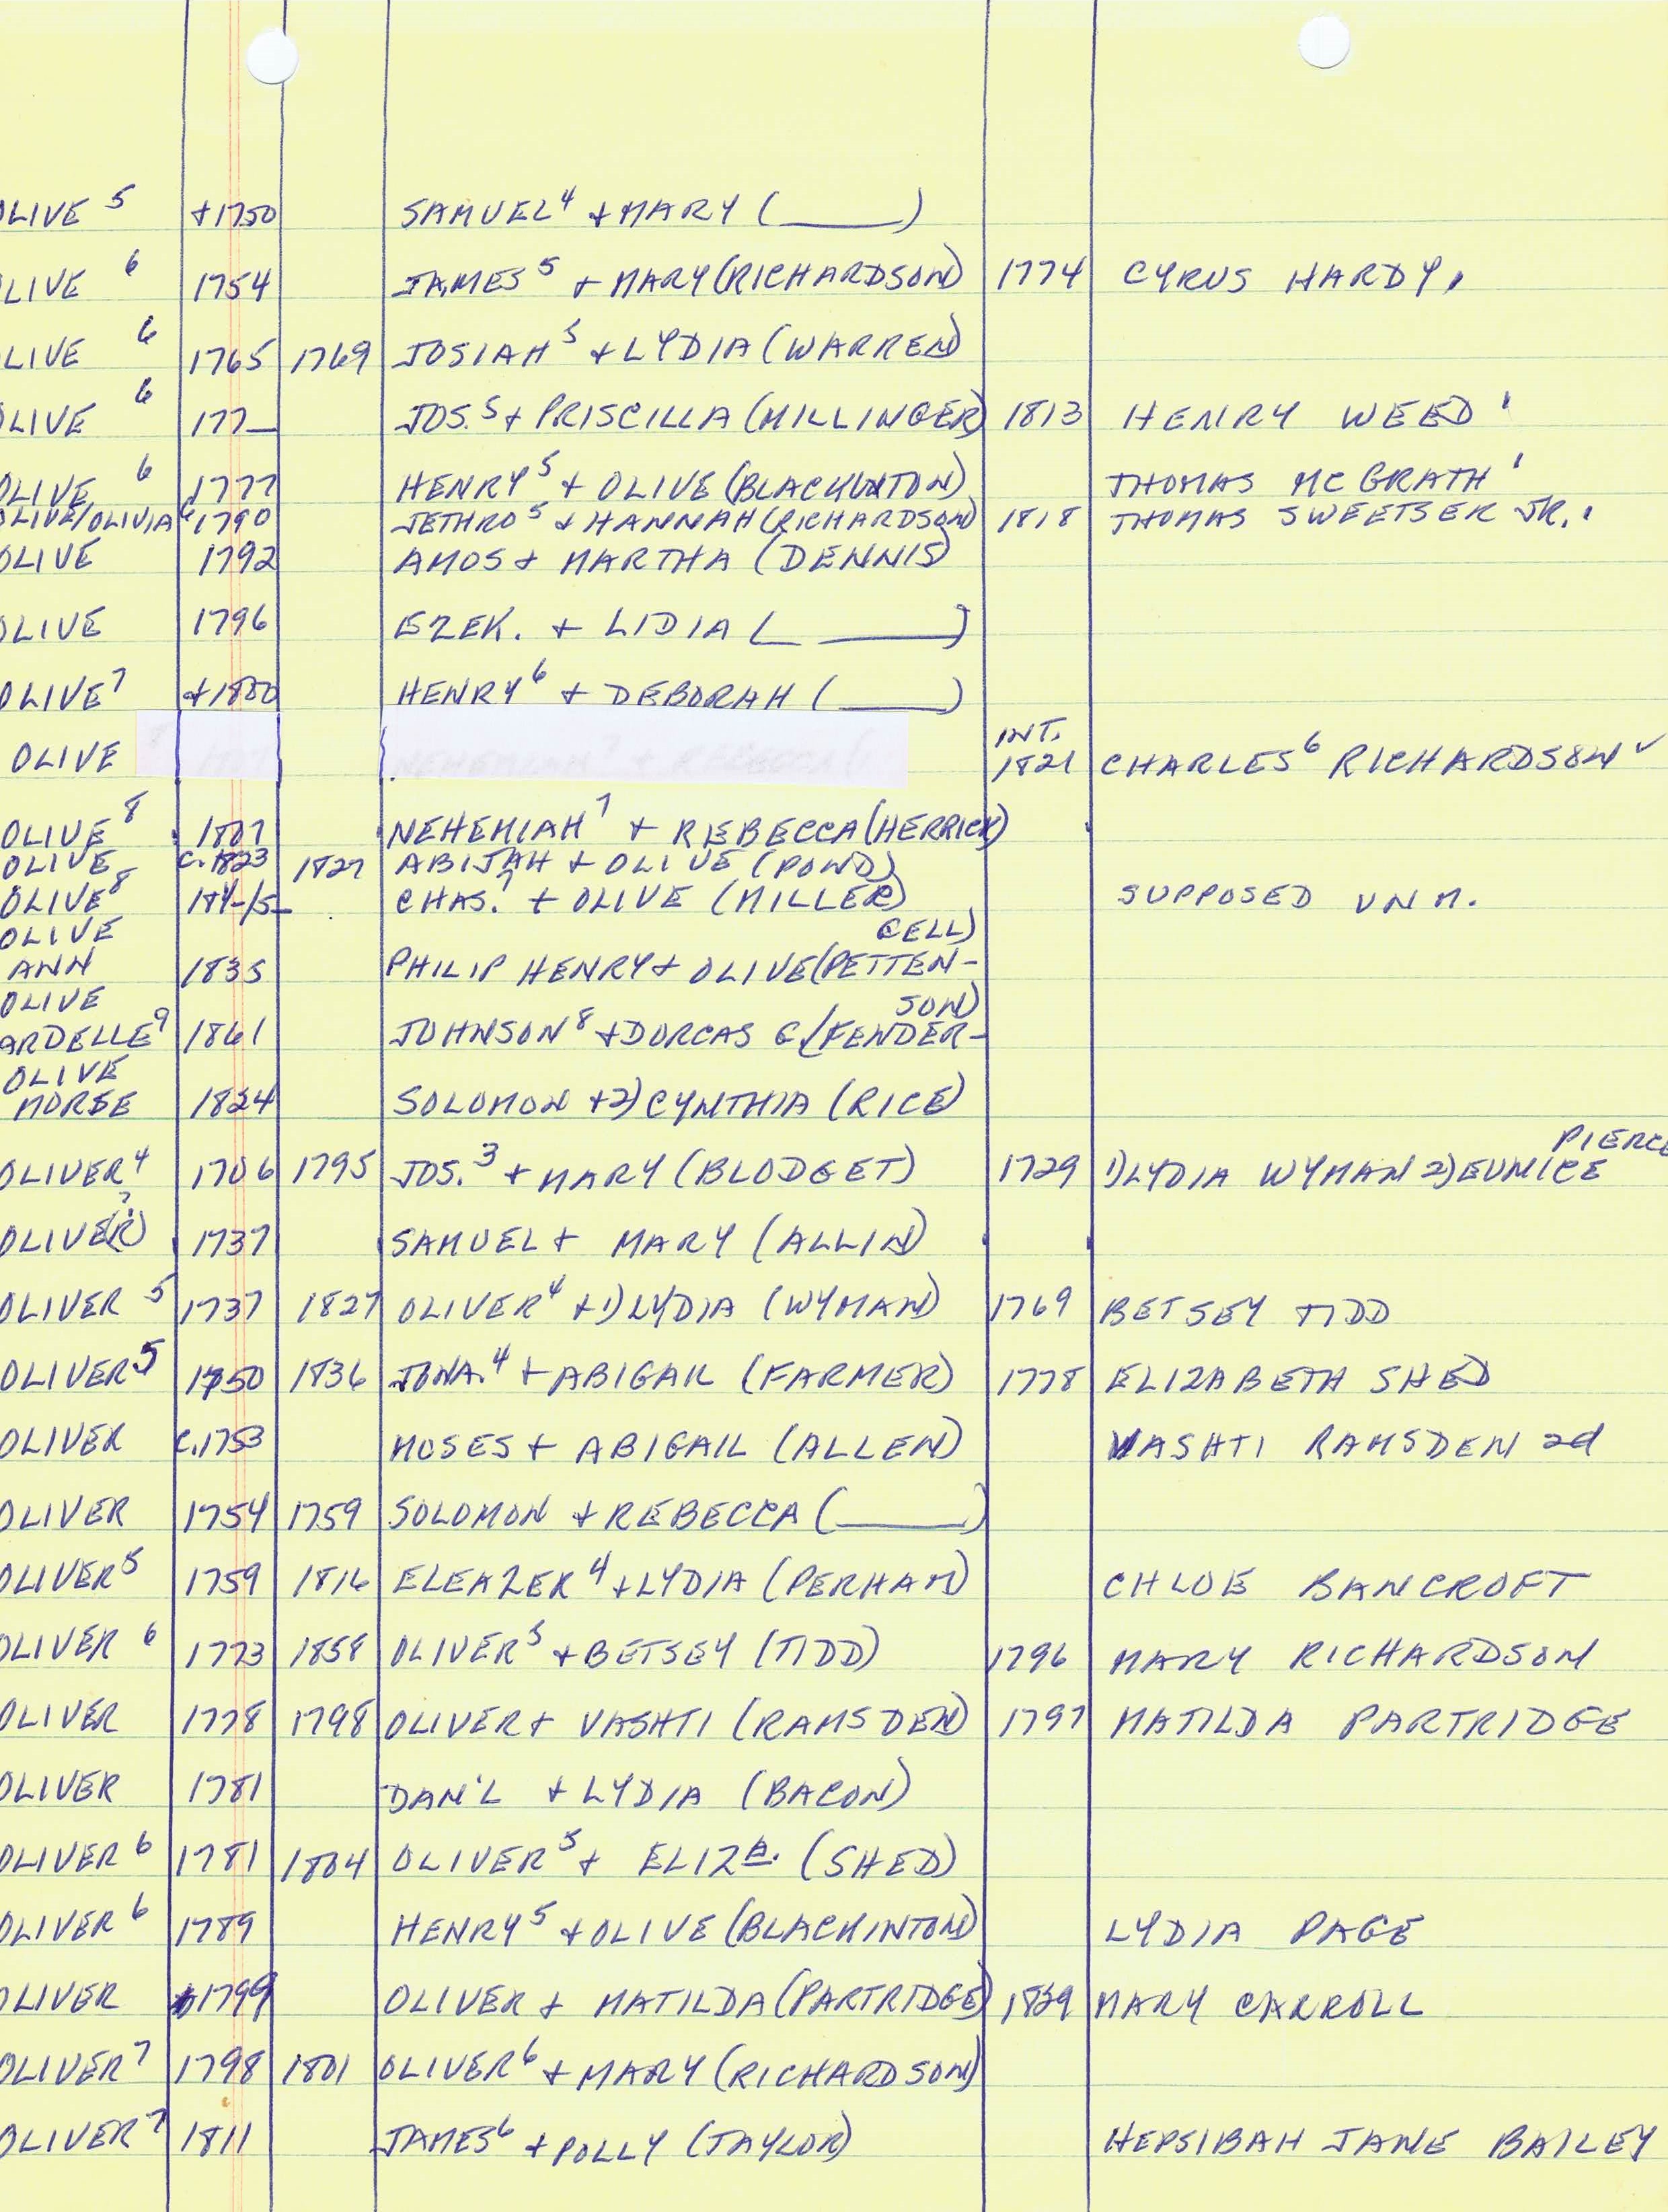 OLIVE 5 +1750 SAMUEL4 + MARY (____)
LIVE 6 1754 JAMES5 + MARY (RICHARDSON) 1774 CYRUS HARDY,
LIVE 6 1765 1769 JOSIAH5 + LYDIA (WARREN)
OLIVE 6 177_ JOS.5 + PRISCILLA (MILLINGER) 1813 HENRY WEED
OLIVE 6 1777 HENRY5 + OLIVE (BLACKINTON) THOMAS MCGRATH
OLIVE/OLIVIA6 1790 JETHRO5 + HANNAH (RICHARDSON) 1818 THOMAS SWEETSER JR.
OLIVE 1792 AMOS + MARTHA (DENNIS)
OLIVE 1796 EZEK. + LIDIA (____)
OLIVE7 +1800 HENRY6 + DEBORAH (____)
OLIVE INT. 1821 CHARLES6 RICHARDSON ✓
OLIVE8 1807 NEHEMIAH7 + REBECCA (HERRICK)
OLIVE c.1823 1827 ABIJAH + OLIVE (POND)
OLIVE8 184-/5_ CHAS.7 + OLIVE (MILLER) SUPPOSED UNM.
OLIVE CELL)
ANN 1835 PHILIP HENRY + OLIVE (PETTEN-
OLIVE SON)
ARDELLE9 1861 JOHNSON8 + DORCAS G. (FENDER-
OLIVE
MORSE 1824 SOLOMON + 2) CYNTHIA (RICE)
PIERCE
OLIVER4 1706 1795 JOS.3 + MARY (BLODGET) 1729 1) LYDIA WYMAN 2) EUNICE
OLIVE(R)? 1737 SAMUEL + MARY (ALLIN)
OLIVER 5 1737 1827 OLIVER4 + 1) LYDIA (WYMAN) 1769 BETSEY TIDD
OLIVER5 1750 1836 JONA.4 + ABIGAIL (FARMER) 1778 ELIZABETH SHED
OLIVER c.1753 MOSES + ABIGAIL (ALLEN) VASHTI RAMSDEN 2d
OLIVER 1754 1759 SOLOMON + REBECCA (____)
OLIVER5 1759 1816 ELEAZER4 + LYDIA (PERHAM) CHLOE BANCROFT
OLIVER 6 1773 1858 OLIVER5 + BETSEY (TIDD) 1796 MARY RICHARDSON
OLIVER 1778 1798 OLIVER + VASHTI (RAMSDEN) 1797 MATILDA PARTRIDGE
OLIVER 1781 DAN'L + LYDIA (BACON)
OLIVER 6 1781 1804 OLIVER5 + ELIZA. (SHED)
OLIVER 6 1789 HENRY5 + OLIVE (BLACKINTON) LYDIA PAGE
OLIVER 1799 OLIVER + MATILDA (PARTRIDGE) 1829 MARY CARROLL
OLIVER7 1798 1801 OLIVER6 + MARY (RICHARDSON)
OLIVER7 1811 JAMES6 + POLLY (TAYLOR) HEPSIBAH JANE BAILEY